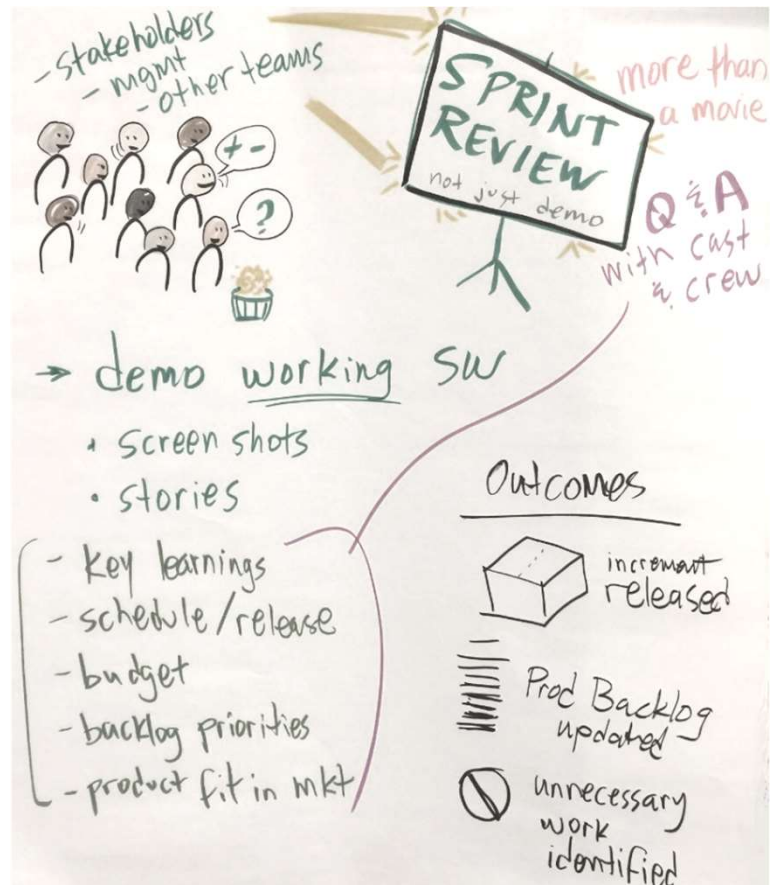 - stakeholders
- mgmt
- other teams
+ -
?
SPRINT
REVIEW
not just demo
more than
a movie
Q & A
with cast
& crew
→ demo working SW
• screen shots
• stories
- key learnings
- schedule/release
- budget
- backlog priorities
- product fit in mkt
Outcomes
increment
released
Prod Backlog
updated
unnecessary
work
identified